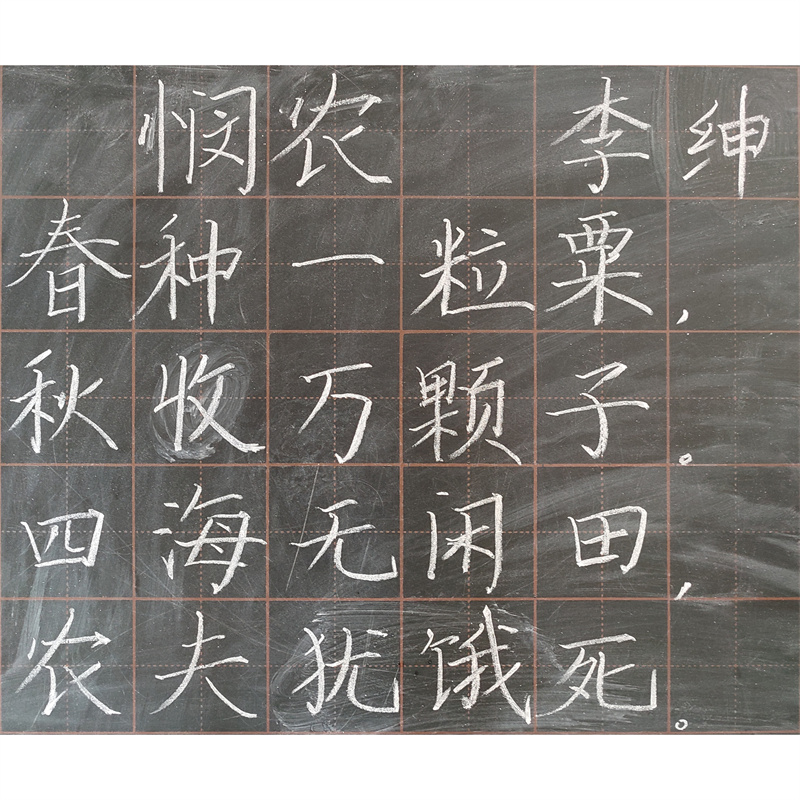 悯农 李绅
春种一粒粟，
秋收万颗子。
四海无闲田，
农夫犹饿死。